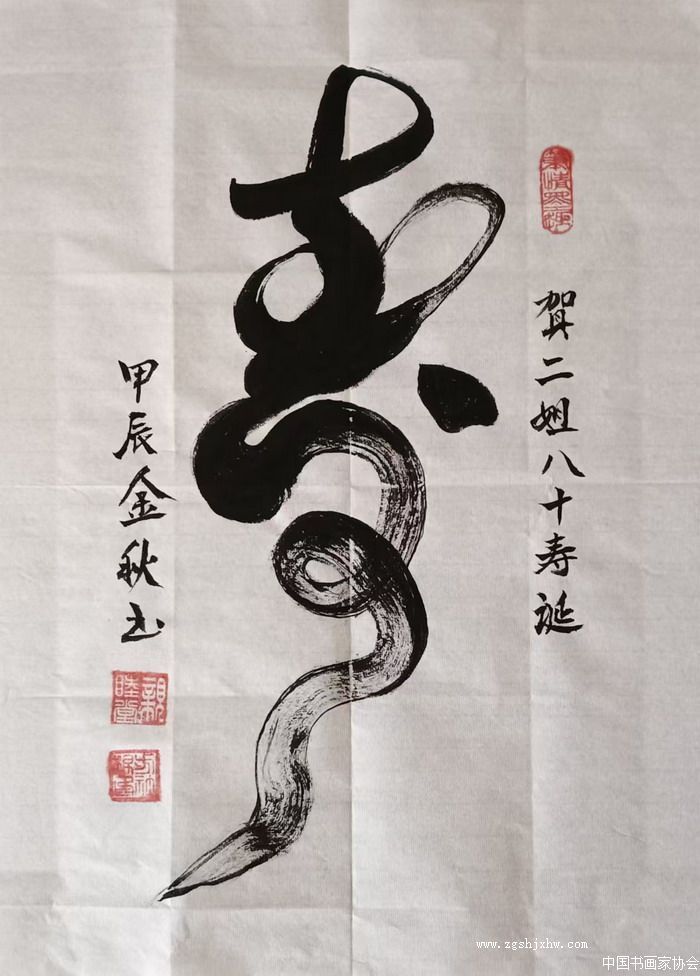 贺二姐八十寿诞
寿
甲辰金秋书
親睦堂
www.zgshjxhw.com
中国书画家协会